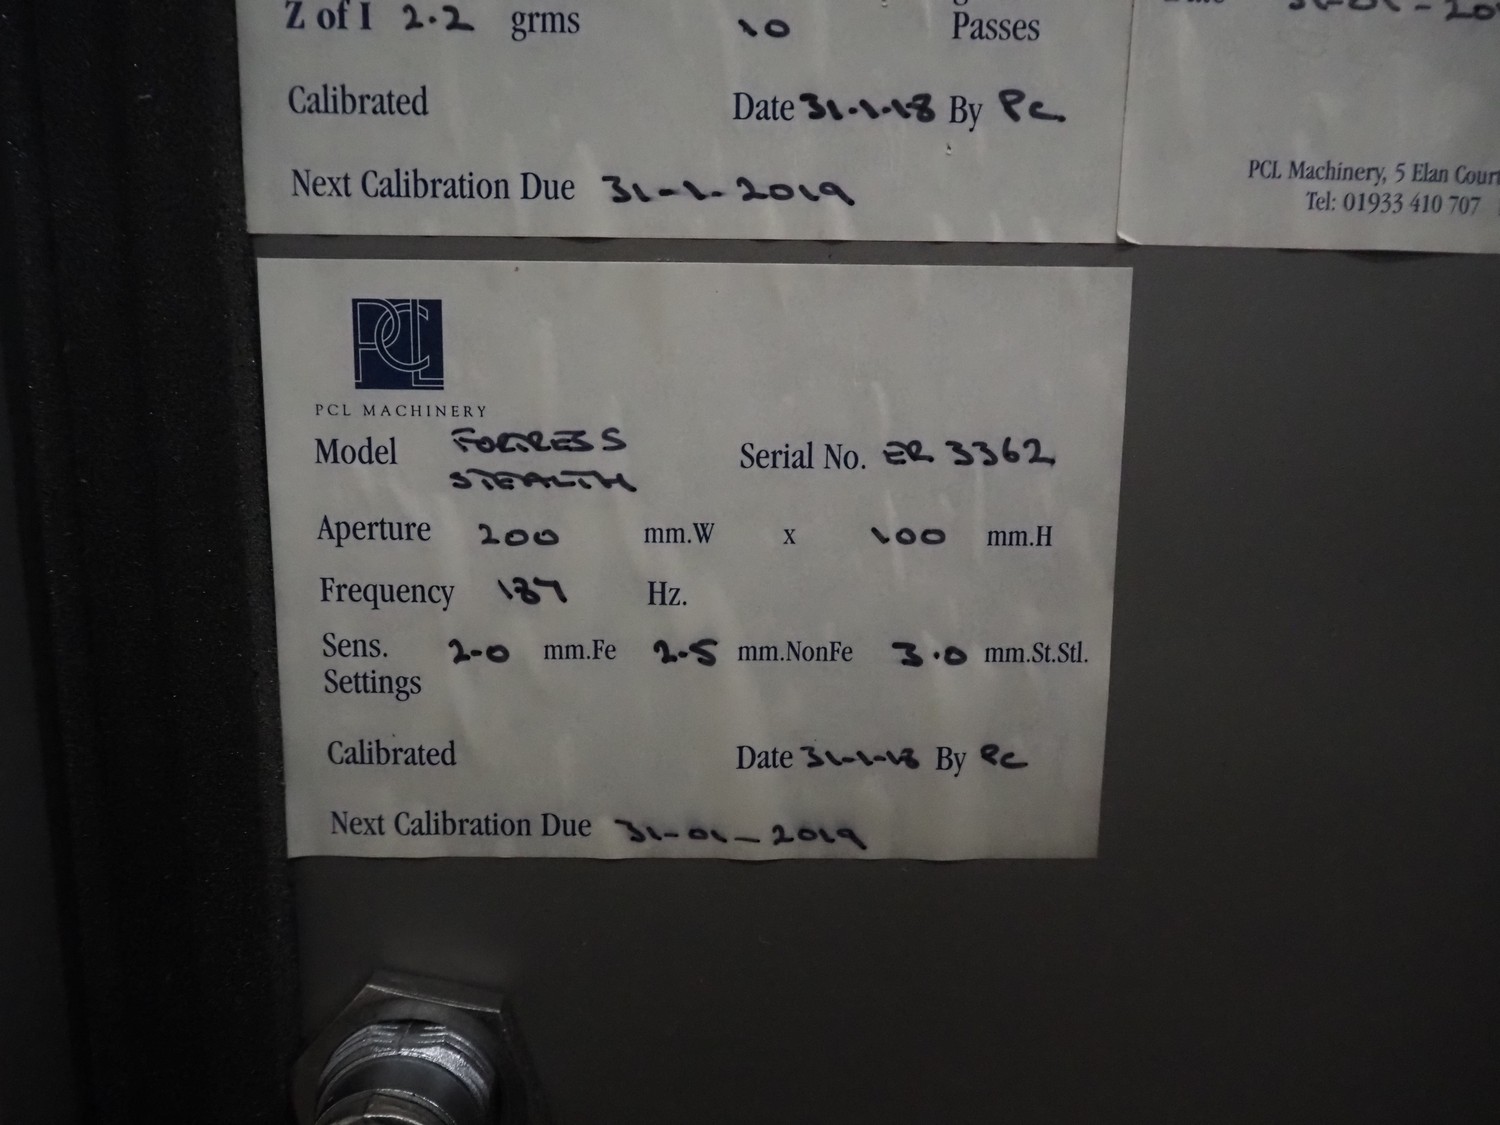 Z of I 2.2 grms 10 Passes
Calibrated Date 31.1.18 By PC.
Next Calibration Due 31-1-2019
PCL Machinery, 5 Elan Court
Tel: 01933 410 707
PCL
PCL MACHINERY
Model FORTRESS STEALTH Serial No. ER 3362
Aperture 200 mm.W x 100 mm.H
Frequency 187 Hz.
Sens. 2.0 mm.Fe 2.5 mm.NonFe 3.0 mm.St.Stl.
Settings
Calibrated Date 31-1-18 By PC
Next Calibration Due 31-01-2019